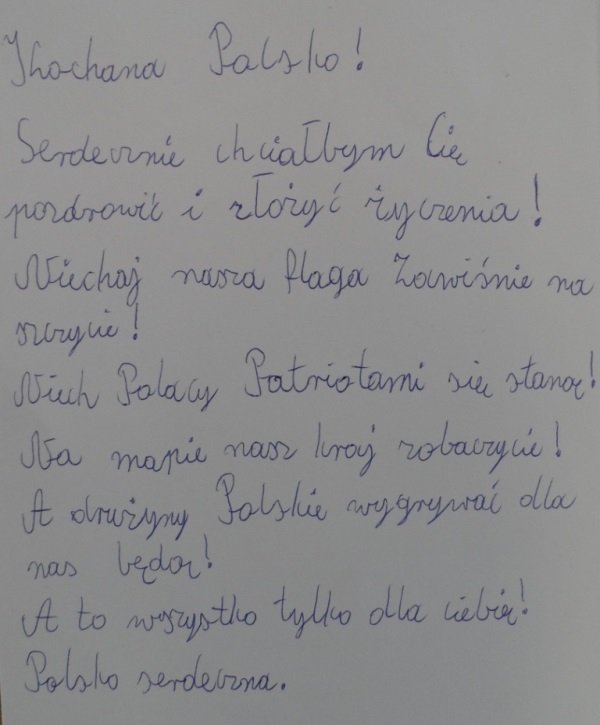 Kochana Polsko!
Serdecznie chciałbym Cię
pozdrowić i złożyć życzenia!
Niechaj nasza flaga Zawiśnie na
szczycie!
Niech Polacy Patriotami się staną!
Na mapie nasz kraj zobaczycie!
A drużyny Polskie wygrywać dla
nas będą!
A to wszystko tylko dla ciebie!
Polsko serdeczna.